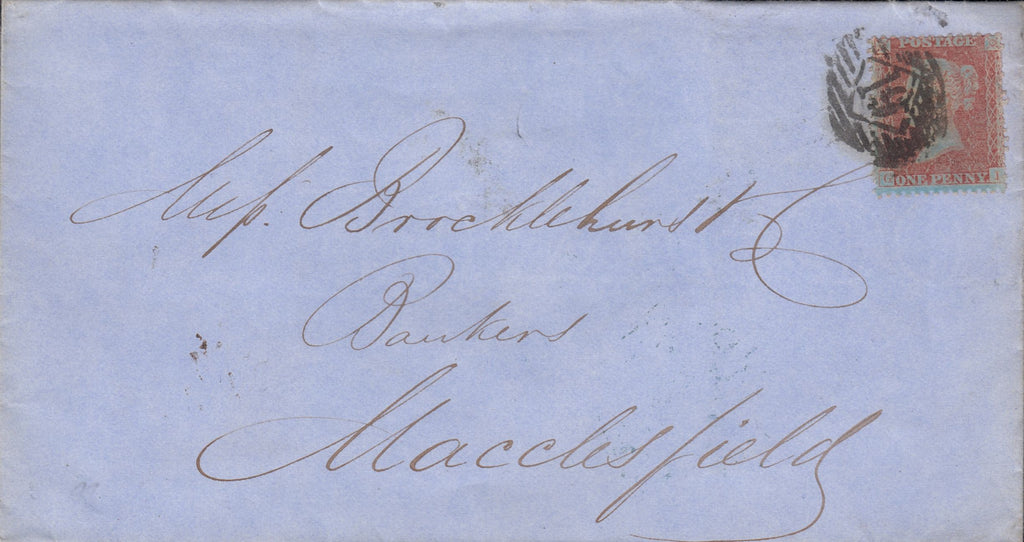 POSTAGE
ONE PENNY
Messrs. Brocklehurst &
Bankers
Macclesfield